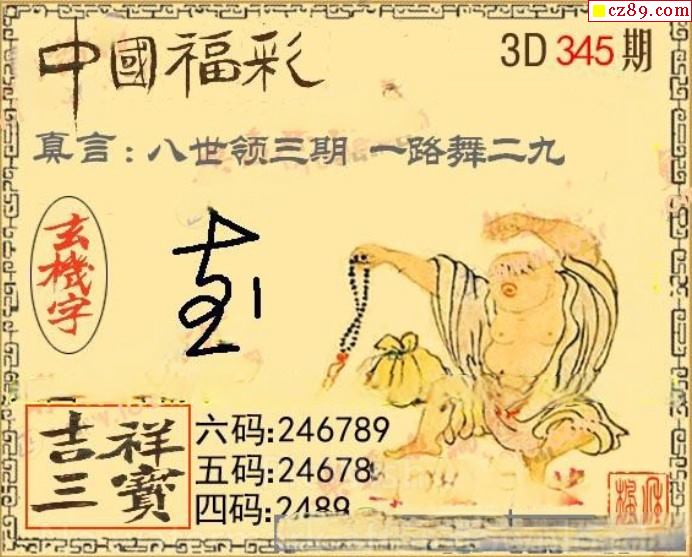 cz89.com
中國福彩
3D 345 期
真言：八世领三期 一路舞二九
玄機字
吉祥三寶
六码:246789
五码:24678
四码:2489